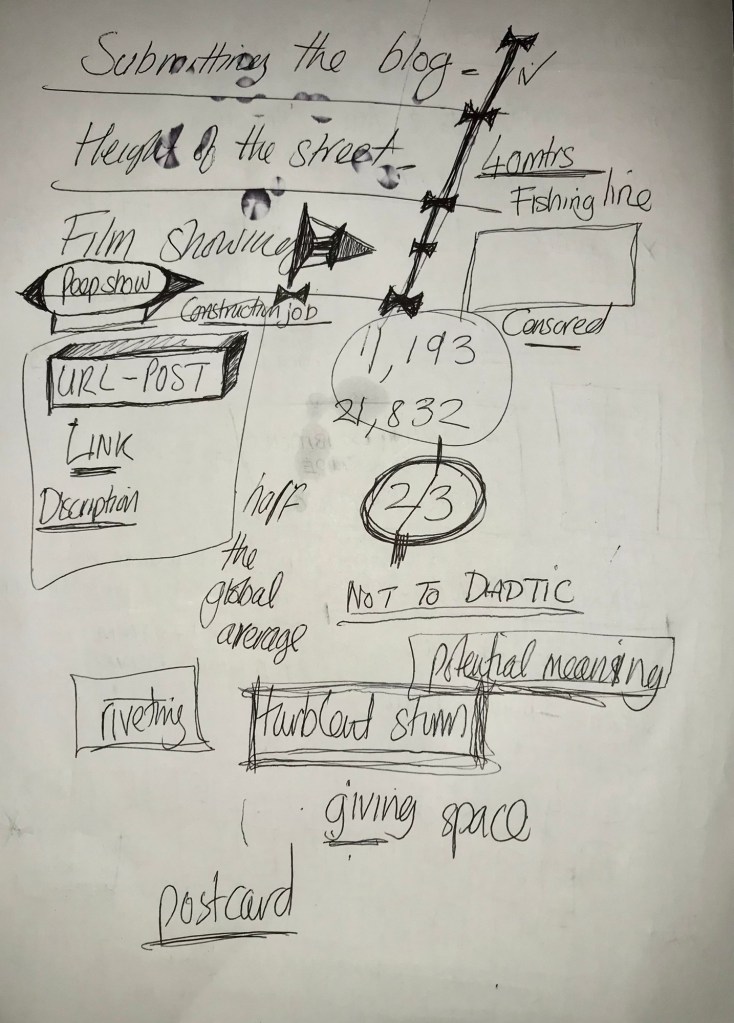 Submitting the blog -
Height of the street
40mtrs
Fishing line
Film showing
Peepshow
Construction job
Censored
11,193
21,832
URL-POST
LINK
Discription
23
half
the
global
average
NOT TO DIADTIC
potential meaning
riveting
turblent
giving space
postcard